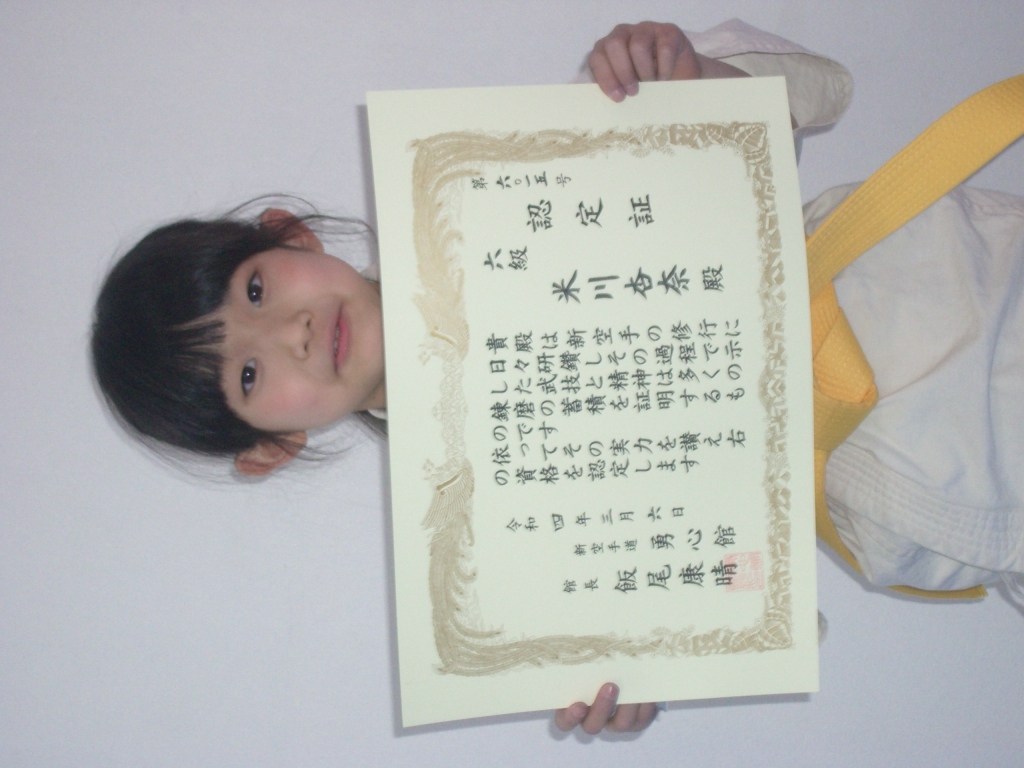 第六〇一五号
認定証
六級
米川杏奈殿
貴殿は新空手の修行に
日々研鑽しその過程で示
した武技と精神は多くの
錬磨の蓄積を証明するも
のです
依ってその実力を讃え右
の資格を認定します
令和四年三月六日
新空手道 勇心館
館長 飯尾康晴